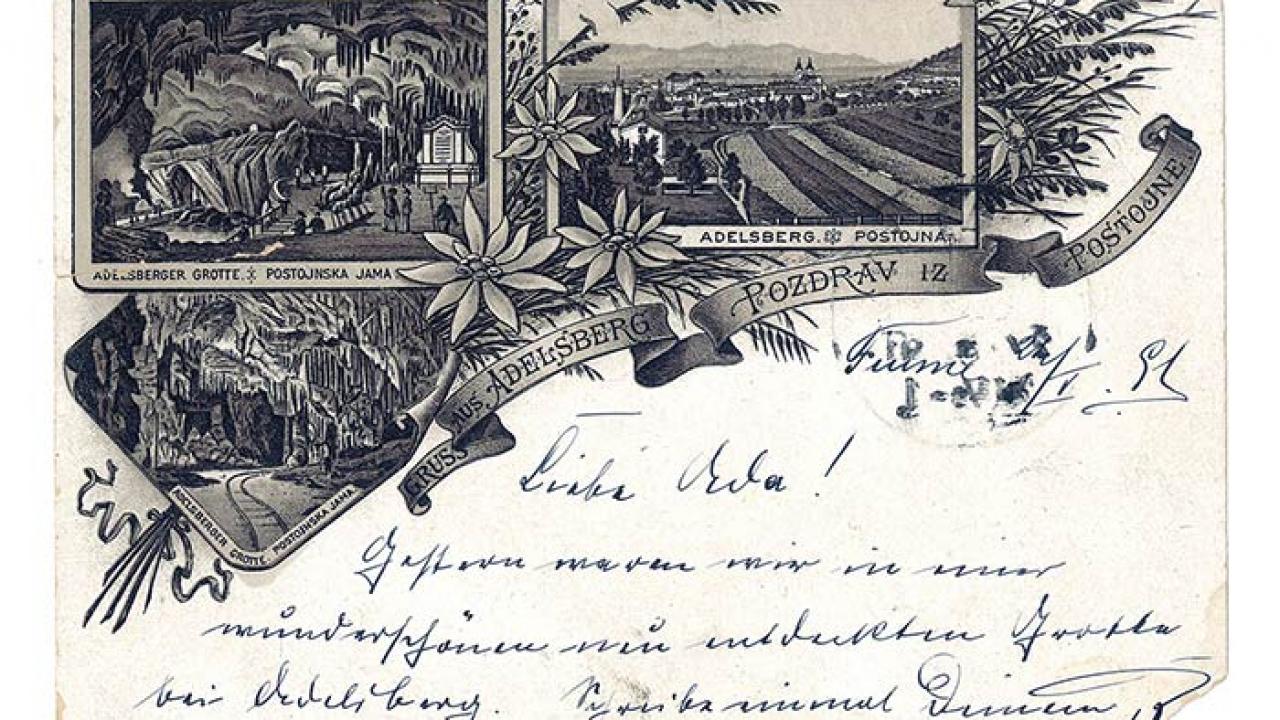 ADELSBERGER GROTTE. POSTOJNSKA JAMA
ADELSBERG. POSTOJNA.
ADELSBERGER GROTTE. POSTOJNSKA JAMA
GRUSS AUS ADELSBERG
POZDRAV IZ POSTOJNE
Fiume
Liebe Ada!
Gestern waren wir in einer
wunderschönen neu entdeckten Grotte
bei Adelsberg. Schreibe einmal Deinem